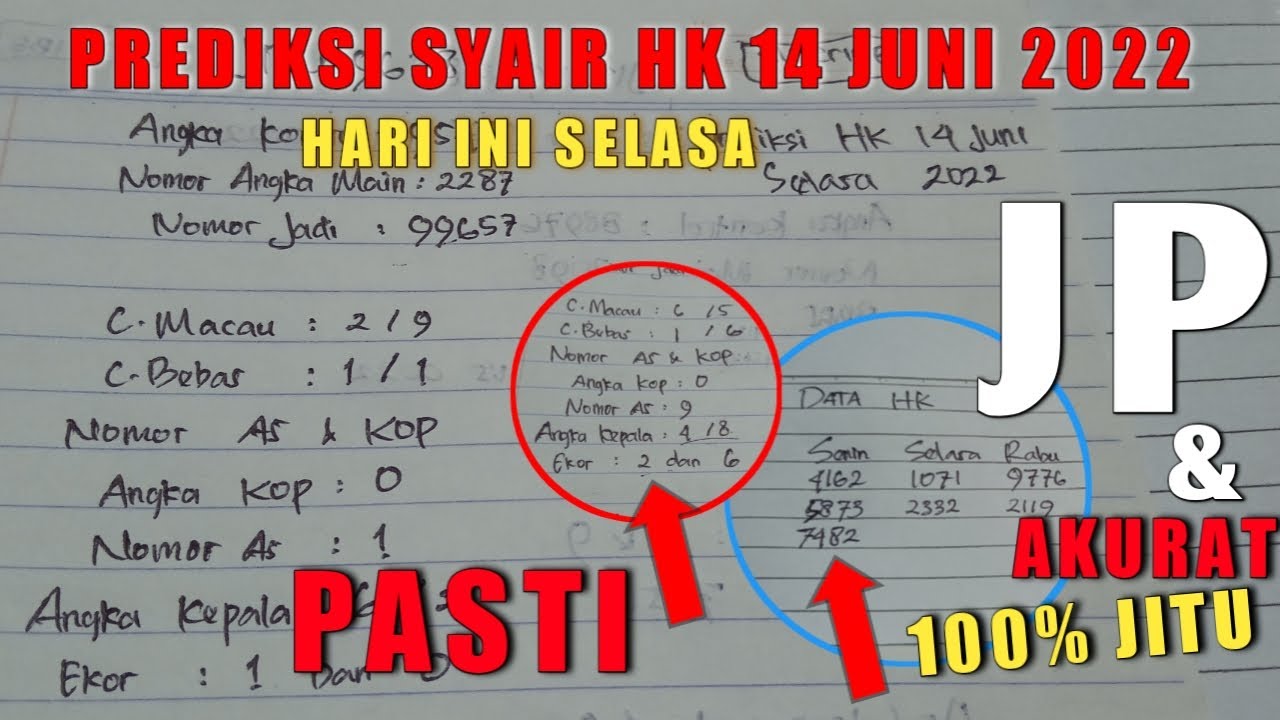 PREDIKSI SYAIR HK 14 JUNI 2022
HARI INI SELASA
Angka
HK 14 Juni
Nomor Angka Main : 2287
Selasa 2022
Nomor Jadi : 99657
C. Macau : 2 / 9
C. Bebas : 1 / 1
Nomor As & KOP
Angka KOP : 0
Nomor As : 1
Angka Kepala
Ekor : 1 Dan
C. Macau : 6 / 5
C. Bebas : 1 / 6
Nomor As & KOP
Angka Kop : 0
Nomor As : 9
Angka Kepala : 4 / 8
Ekor : 2 dan 6
DATA HK
Senin Selasa Rabu
4162 1071 9776
5873 2332 2119
7482
JP
&
AKURAT
100% JITU
PASTI